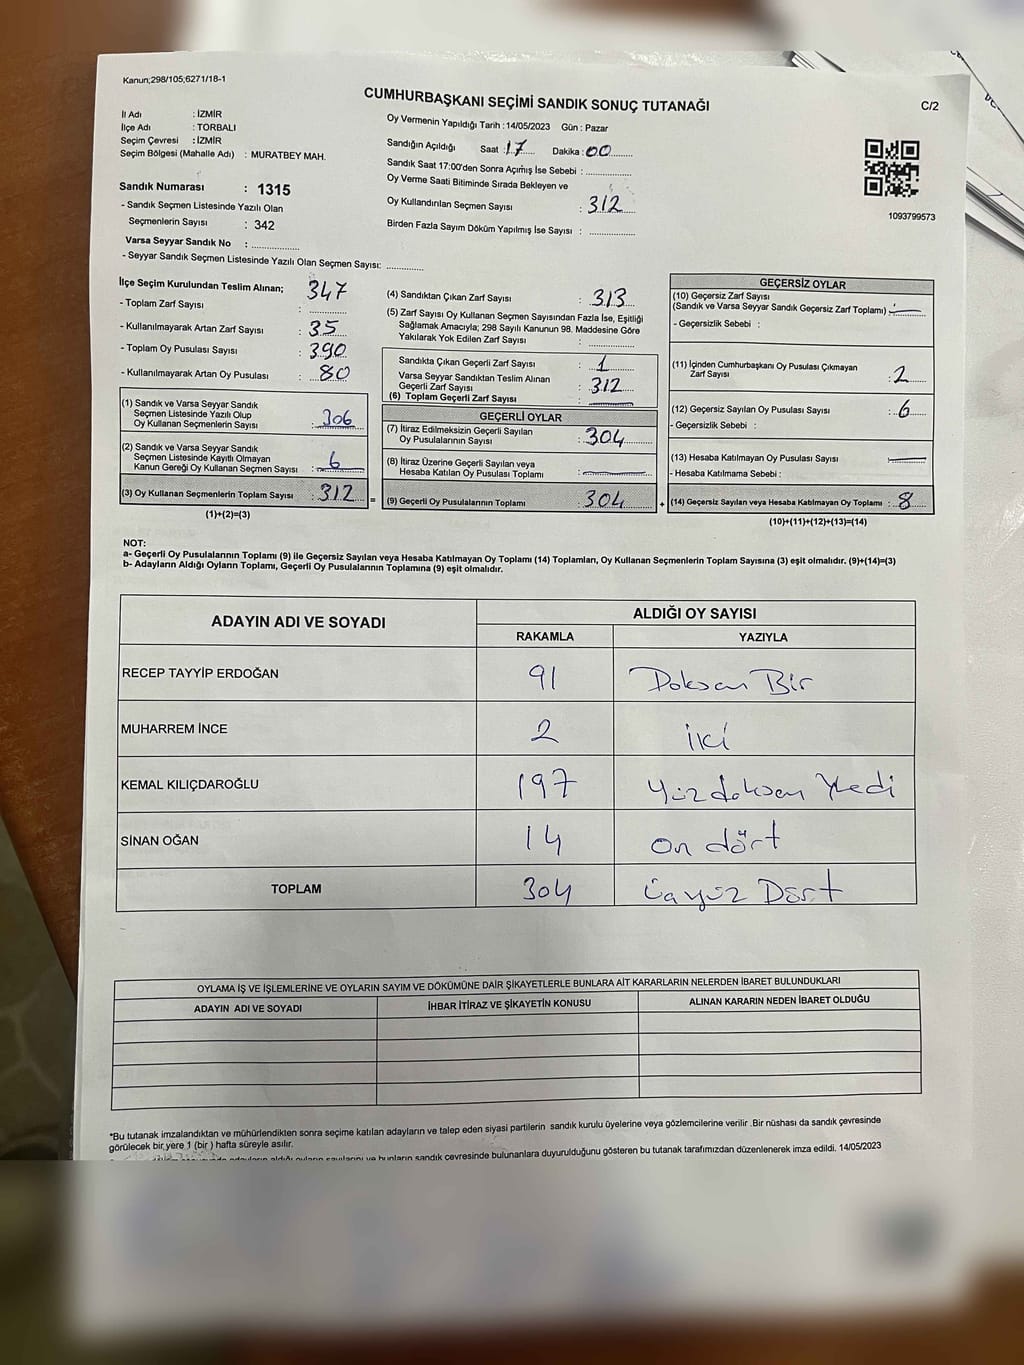 Kanun;298/105;6271/18-1
CUMHURBAŞKANI SEÇİMİ SANDIK SONUÇ TUTANAĞI
C/2
İl Adı : İZMİR
İlçe Adı : TORBALI
Seçim Çevresi : İZMİR
Seçim Bölgesi (Mahalle Adı) : MURATBEY MAH.
Sandık Numarası : 1315
- Sandık Seçmen Listesinde Yazılı Olan
Seçmenlerin Sayısı : 342
Varsa Seyyar Sandık No :
- Seyyar Sandık Seçmen Listesinde Yazılı Olan Seçmen Sayısı:
Oy Vermenin Yapıldığı Tarih : 14/05/2023 Gün : Pazar
Sandığın Açıldığı Saat : 17 Dakika : 00
Sandık Saat 17:00'den Sonra Açımış İse Sebebi :
Oy Verme Saati Bitiminde Sırada Bekleyen ve
Oy Kullandırılan Seçmen Sayısı : 312
Birden Fazla Sayım Döküm Yapılmış İse Sayısı :
1093799573
İlçe Seçim Kurulundan Teslim Alınan; 347
- Toplam Zarf Sayısı :
- Kullanılmayarak Artan Zarf Sayısı : 35
- Toplam Oy Pusulası Sayısı : 390
- Kullanılmayarak Artan Oy Pusulası : 80
(1) Sandık ve Varsa Seyyar Sandık
Seçmen Listesinde Yazılı Olup
Oy Kullanan Seçmenlerin Sayısı : 306
(2) Sandık ve Varsa Seyyar Sandık
Seçmen Listesinde Kayıtlı Olmayan
Kanun Gereği Oy Kullanan Seçmen Sayısı : 6
(3) Oy Kullanan Seçmenlerin Toplam Sayısı : 312
(1)+(2)=(3)
=
(4) Sandıktan Çıkan Zarf Sayısı : 313
(5) Zarf Sayısı Oy Kullanan Seçmen Sayısından Fazla İse, Eşitliği
Sağlamak Amacıyla; 298 Sayılı Kanunun 98. Maddesine Göre
Yakılarak Yok Edilen Zarf Sayısı :
Sandıkta Çıkan Geçerli Zarf Sayısı : 1
Varsa Seyyar Sandıktan Teslim Alınan
Geçerli Zarf Sayısı : 312
(6) Toplam Geçerli Zarf Sayısı :
GEÇERLİ OYLAR
(7) İtiraz Edilmeksizin Geçerli Sayılan
Oy Pusulalarının Sayısı : 304
(8) İtiraz Üzerine Geçerli Sayılan veya
Hesaba Katılan Oy Pusulası Toplamı :
(9) Geçerli Oy Pusulalarının Toplamı : 304
+
GEÇERSİZ OYLAR
(10) Geçersiz Zarf Sayısı
(Sandık ve Varsa Seyyar Sandık Geçersiz Zarf Toplamı) :
- Geçersizlik Sebebi :
(11) İçinden Cumhurbaşkanı Oy Pusulası Çıkmayan
Zarf Sayısı : 2
(12) Geçersiz Sayılan Oy Pusulası Sayısı : 6
- Geçersizlik Sebebi :
(13) Hesaba Katılmayan Oy Pusulası Sayısı
- Hesaba Katılmama Sebebi :
(14) Geçersiz Sayılan veya Hesaba Katılmayan Oy Toplamı : 8
(10)+(11)+(12)+(13)=(14)
NOT:
a- Geçerli Oy Pusulalarının Toplamı (9) ile Geçersiz Sayılan veya Hesaba Katılmayan Oy Toplamı (14) Toplamları, Oy Kullanan Seçmenlerin Toplam Sayısına (3) eşit olmalıdır. (9)+(14)=(3)
b- Adayların Aldığı Oyların Toplamı, Geçerli Oy Pusulalarının Toplamına (9) eşit olmalıdır.
ADAYIN ADI VE SOYADI
ALDIĞI OY SAYISI
RAKAMLA YAZIYLA
RECEP TAYYİP ERDOĞAN 91 Doksan Bir
MUHARREM İNCE 2 iki
KEMAL KILIÇDAROĞLU 197 Yüzdoksan Yedi
SİNAN OĞAN 14 on dört
TOPLAM 304 üçyüz Dört
OYLAMA İŞ VE İŞLEMLERİNE VE OYLARIN SAYIM VE DÖKÜMÜNE DAİR ŞİKAYETLERLE BUNLARA AİT KARARLARIN NELERDEN İBARET BULUNDUKLARI
ADAYIN ADI VE SOYADI İHBAR İTİRAZ VE ŞİKAYETİN KONUSU ALINAN KARARIN NEDEN İBARET OLDUĞU
*Bu tutanak imzalandıktan ve mühürlendikten sonra seçime katılan adayların ve talep eden siyasi partilerin sandık kurulu üyelerine veya gözlemcilerine verilir .Bir nüshası da sandık çevresinde
görülecek bir yere 1 (bir ) hafta süreyle asılır.
adayların aldığı oyların sayılarını ve bunların sandık çevresinde bulunanlara duyurulduğunu gösteren bu tutanak tarafımızdan düzenlenerek imza edildi. 14/05/2023